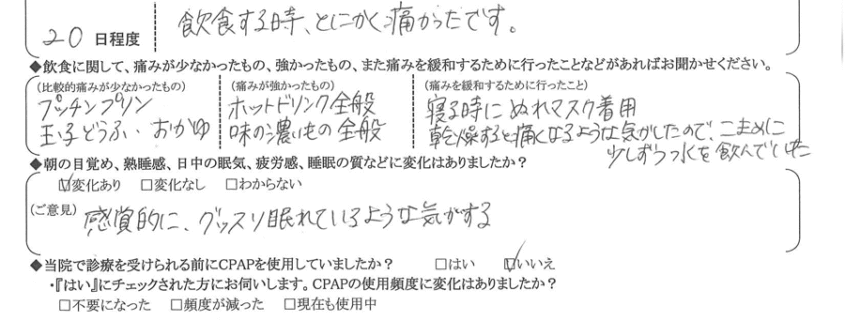 飲食する時、とにかく痛かったです。
20 日程度
◆飲食に関して、痛みが少なかったもの、強かったもの、また痛みを緩和するために行ったことなどがあればお聞かせください。
(比較的痛みが少なかったもの) (痛みが強かったもの) (痛みを緩和するために行ったこと)
プッチンプリン ホットドリンク全般 寝る時にぬれマスク着用
玉子どうふ・おかゆ 味の濃いもの全般 乾燥すると痛くなるような気がしたので、こまめに
少しずつ水を飲んでいた
◆朝の目覚め、熟睡感、日中の眠気、疲労感、睡眠の質などに変化はありましたか？
☑変化あり □変化なし □わからない
(ご意見) 感覚的に、グッスリ眠れているような気がする
◆当院で診療を受けられる前にCPAPを使用していましたか？ □はい ☑いいえ
・『はい』にチェックされた方にお伺いします。CPAPの使用頻度に変化はありましたか？
□不要になった □頻度が減った □現在も使用中